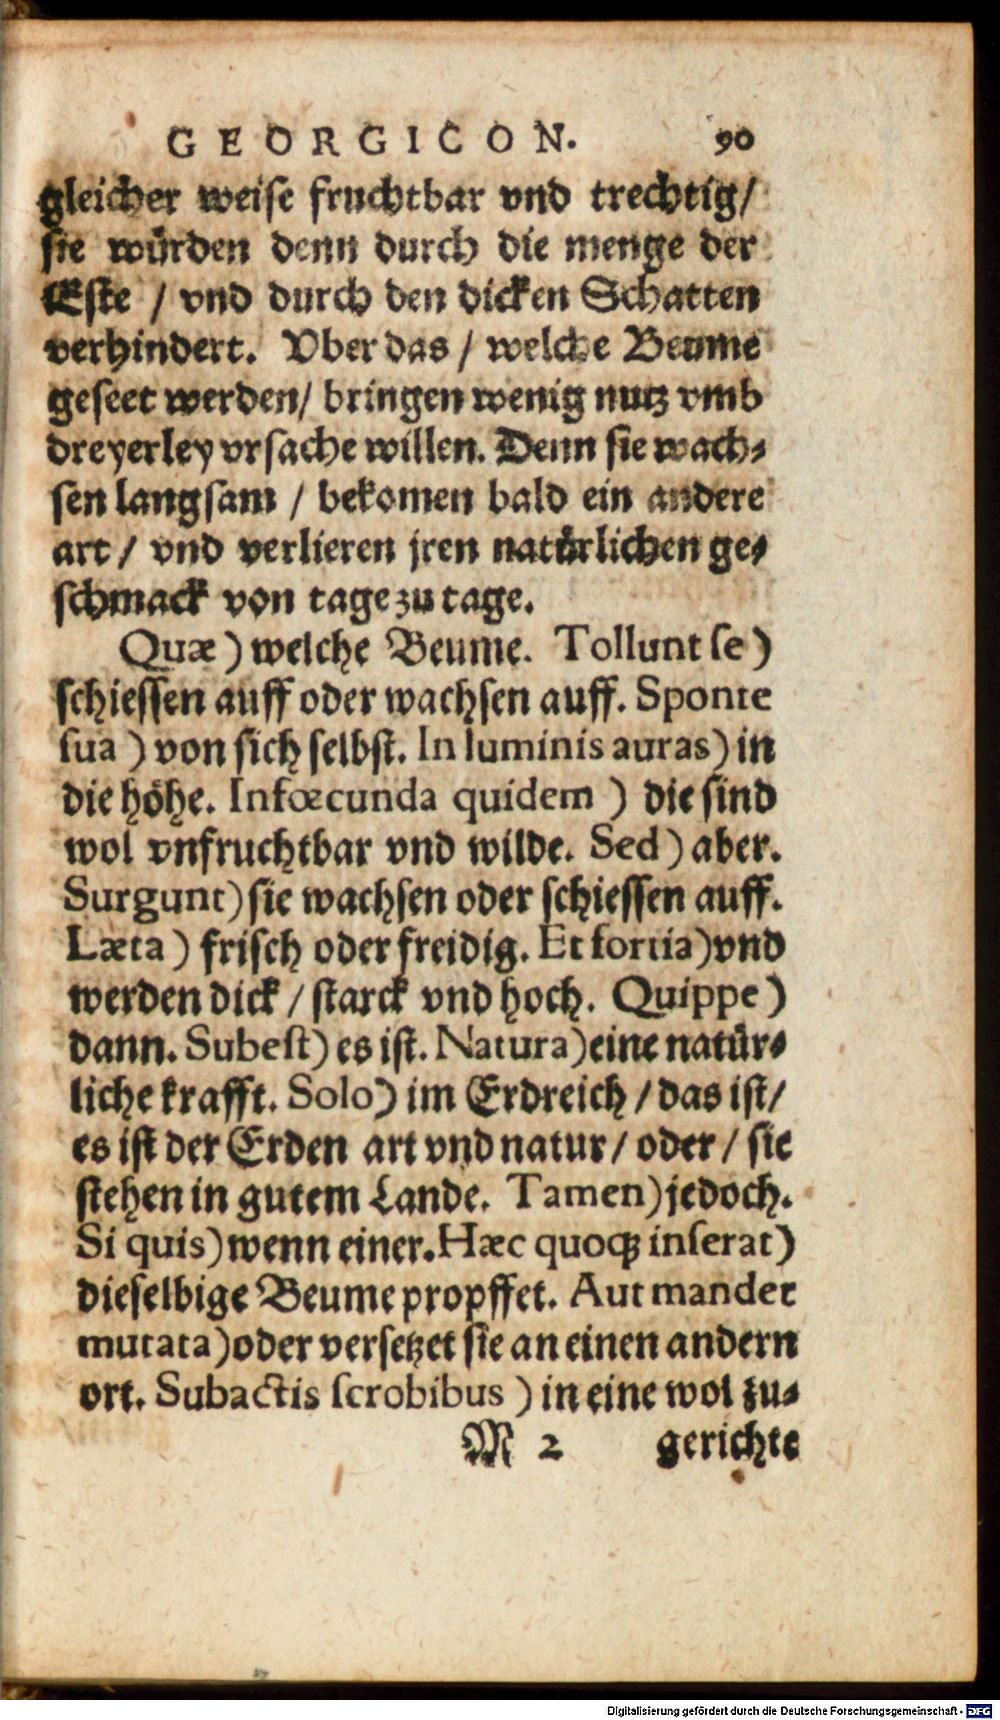 GEORGICON. 90
gleicher weise fruchtbar vnd trechtig/
sie würden denn durch die menge der
Este / vnd durch den dicken Schatten
verhindert. Vber das / welche Beume
geseet werden/ bringen wenig nutz vmb
dreyerley vrsache willen. Denn sie wach-
sen langsam / bekomen bald ein andere
art / vnd verlieren jren natürlichen ge-
schmack von tage zu tage.
Quæ ) welche Beume. Tollunt se )
schiessen auff oder wachsen auff. Sponte
sua ) von sich selbst. In luminis auras) in
die höhe. Infœcunda quidem ) die sind
wol vnfruchtbar vnd wilde. Sed ) aber.
Surgunt) sie wachsen oder schiessen auff.
Læta ) frisch oder freidig. Et fortia) vnd
werden dick / starck vnd hoch. Quippe )
dann. Subest) es ist. Natura) eine natür-
liche krafft. Solo) im Erdreich / das ist/
es ist der Erden art vnd natur / oder / sie
stehen in gutem Lande. Tamen) jedoch.
Si quis) wenn einer. Hæc quoqꝫ inserat)
dieselbige Beume propffet. Aut mandet
mutata ) oder versetzet sie an einen andern
ort. Subactis scrobibus ) in eine wol zu-
M 2 gerichte
Digitalisierung gefördert durch die Deutsche Forschungsgemeinschaft - DFG